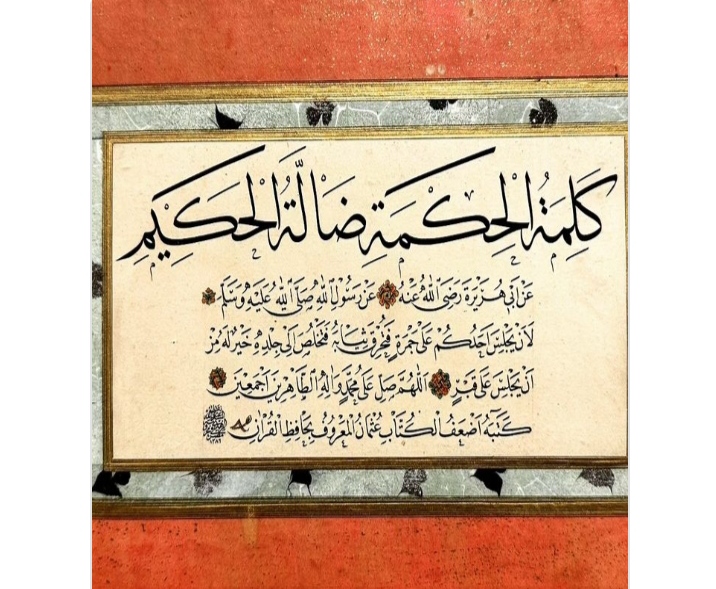 كَلِمَةُ الْحِكْمَةِ ضَالَّةُ الْحَكِيْمِ
عَنْ اَبِي هُرَيْرَةَ رَضِيَ اللّٰهُ عَنْهُ عَنْ رَسُوْلِ اللّٰهِ صَلَّى اللّٰهُ عَلَيْهِ وَسَلَّمَ
لَاَنْ يَجْلِسَ اَحَدُكُمْ عَلٰى جَمْرَةٍ فَتُحْرِقَ ثِيَابَهُ فَتَخْلُصَ اِلٰى جِلْدِهِ خَيْرٌ لَهُ مِنْ
اَنْ يَجْلِسَ عَلٰى قَبْرٍ اَللّٰهُمَّ صَلِّ عَلٰى مُحَمَّدٍ وَاٰلِهِ الطَّاهِرِيْنَ اَجْمَعِيْنَ
كَتَبَهُ اَضْعَفُ الْكُتَّابِ عُثْمَانُ الْمَعْرُوْفُ بِحَافِظِ الْقُرْاٰنِ